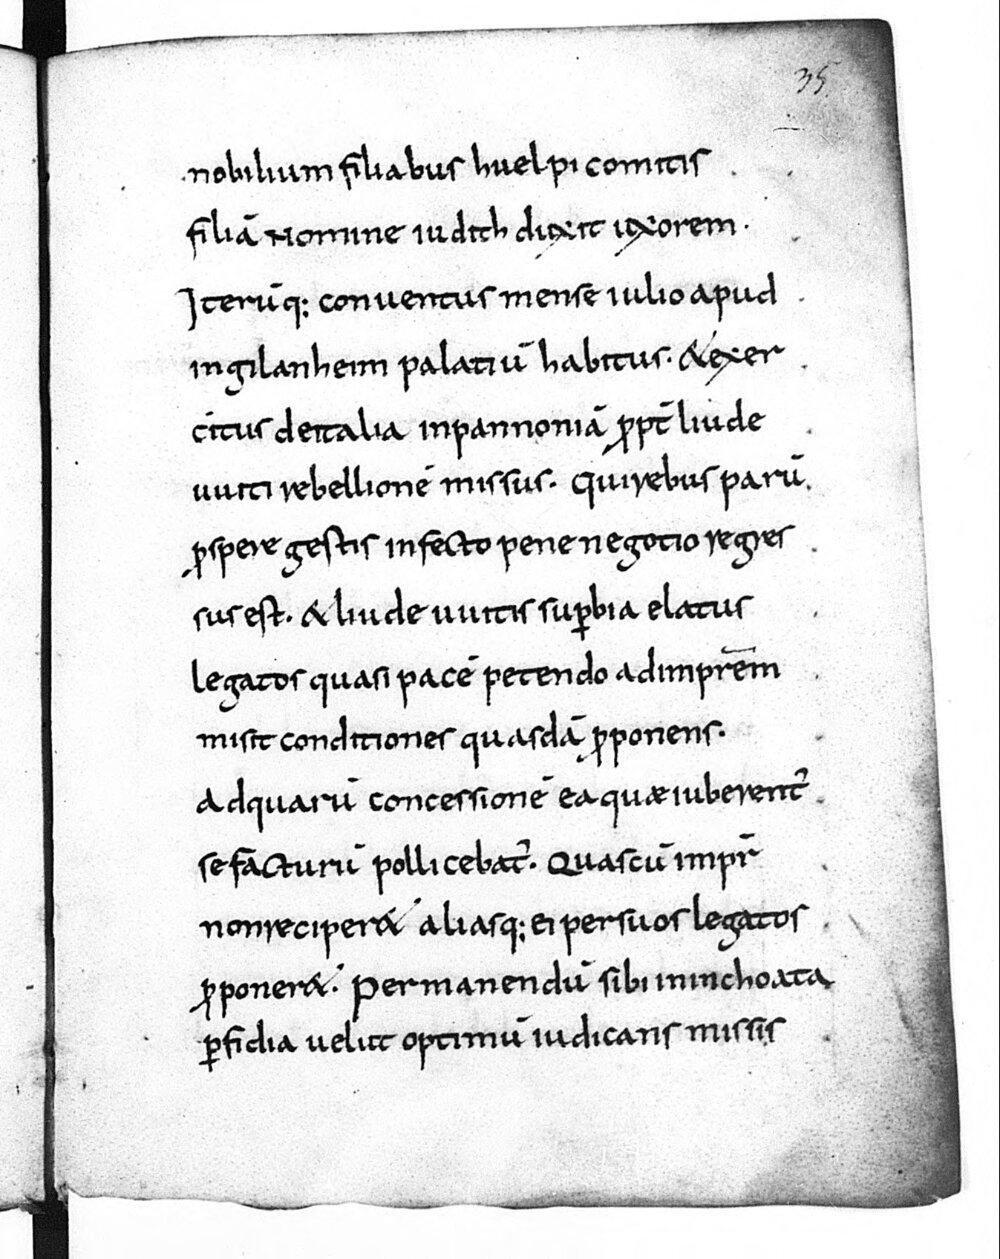 35
nobilium filiabus huelpi comitis
filiā Nomine iudith dixit uxorem.
Iterūq; conuentus mense iulio apud
ingilanheim palatiū habitus. &exer
citus deitalia inpannoniā ꝓpt̄ liude
uuiti rebellionē missus. Quirebus parū
ꝓspere gestis infecto pene negotio regres
sus est. & liudeuuitis suꝑbia elatus
legatos quasi pacē petendo adimprēm
misit conditiones quasdā ꝓponens.
Adquarū concessionē ea quæ iuberent̉
se facturū pollicebat̉. Quascū impr̄
nonreciper& aliasq; ei persuos legatos
ꝓponer&. Permanendū sibi ininchoata
ꝑfidia uelut optimū iudicans missis